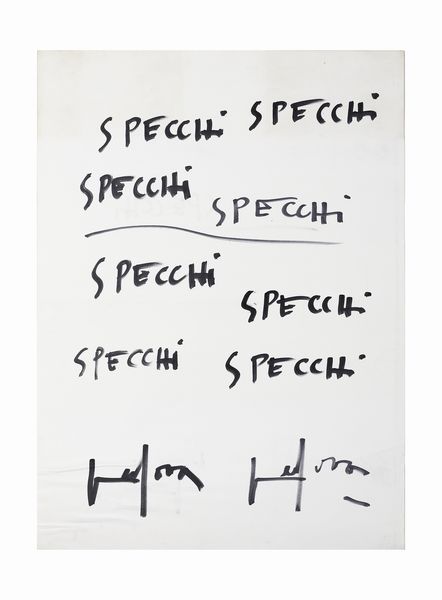 SPECCHi SPECCHi
SPECCHi SPECCHi
SPECCHi SPECCHi
SPECCHi SPECCHi